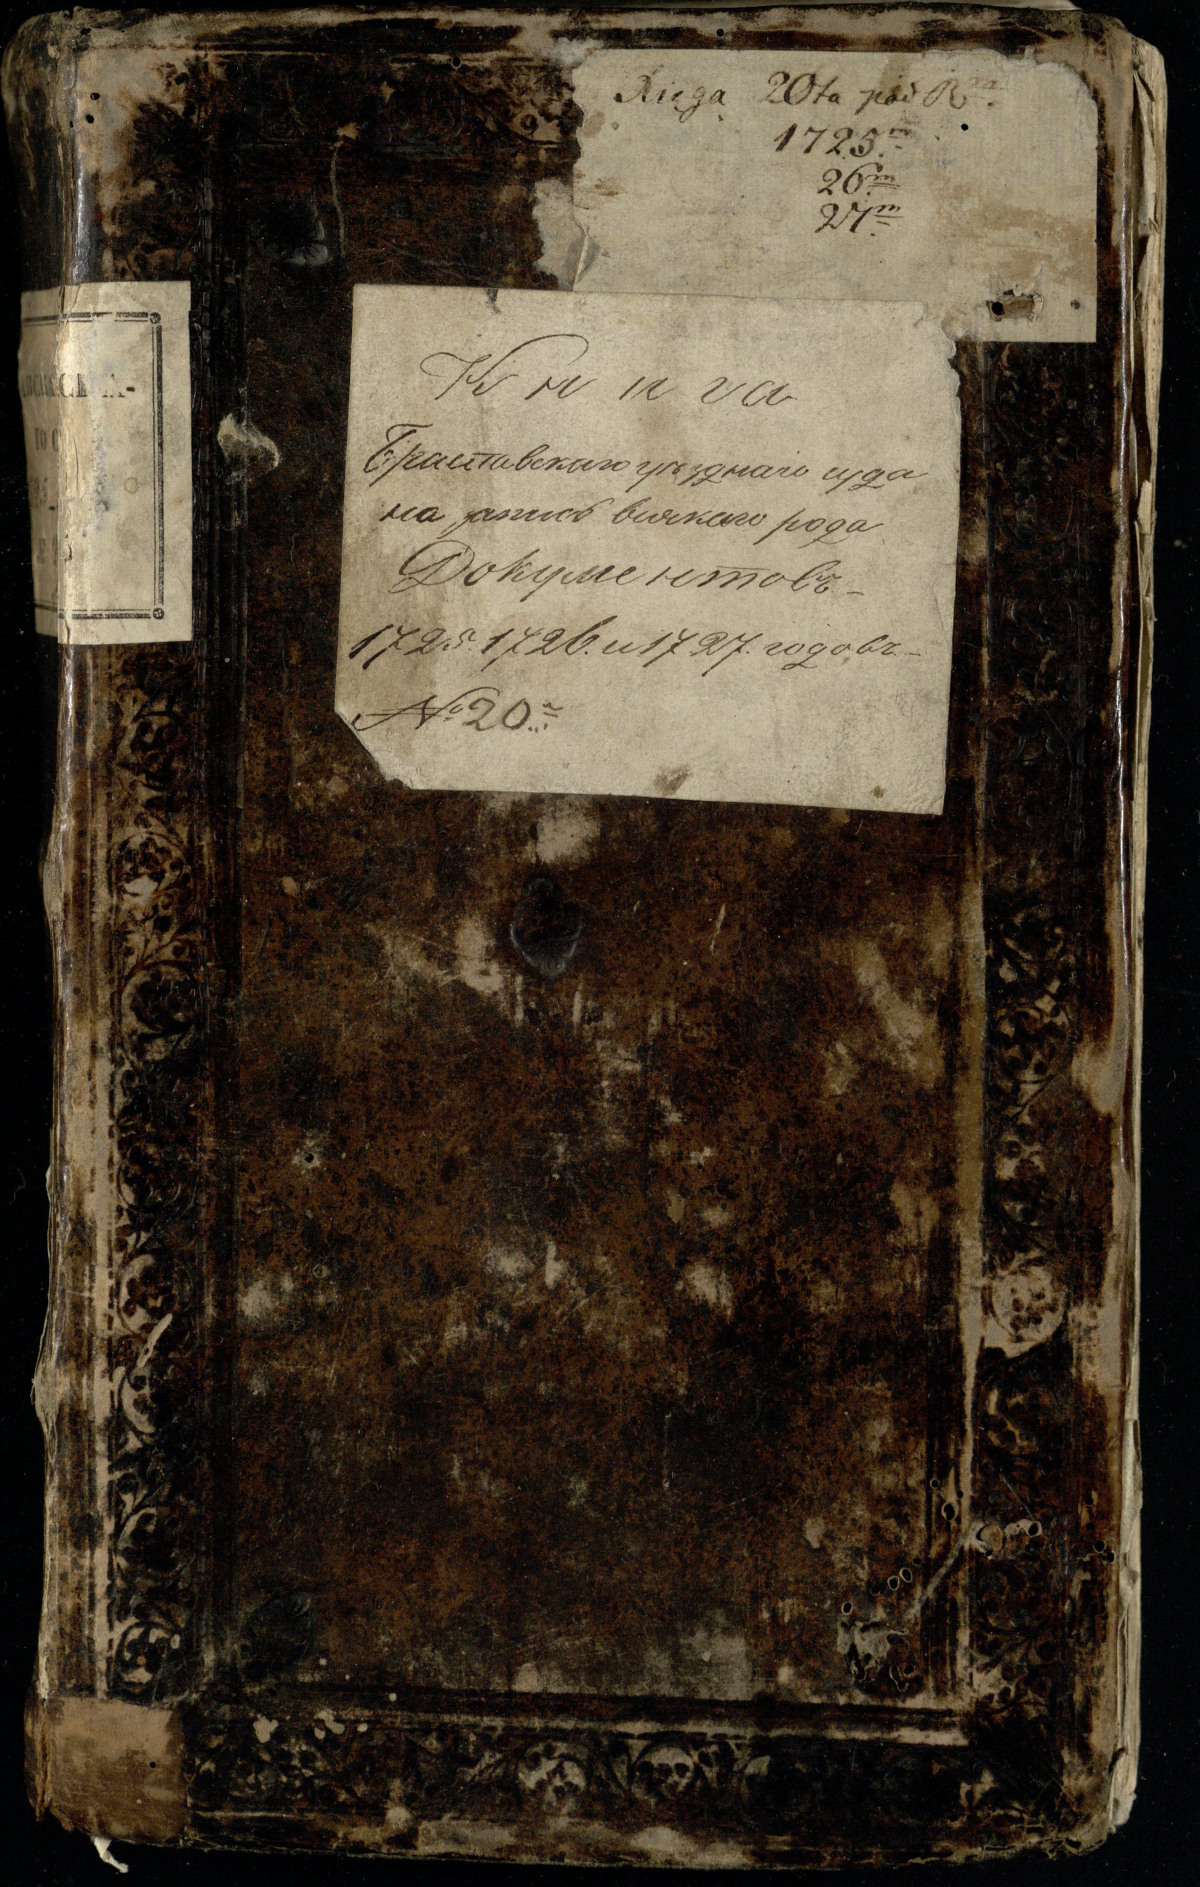 Xięga 20ta pod R^m
1725^m
26^m
27^m
Книга
Браславскаго уѣзднаго суда
на запись всякаго рода
Документовъ
1725. 1726. и 1727. годовъ
№ 20.